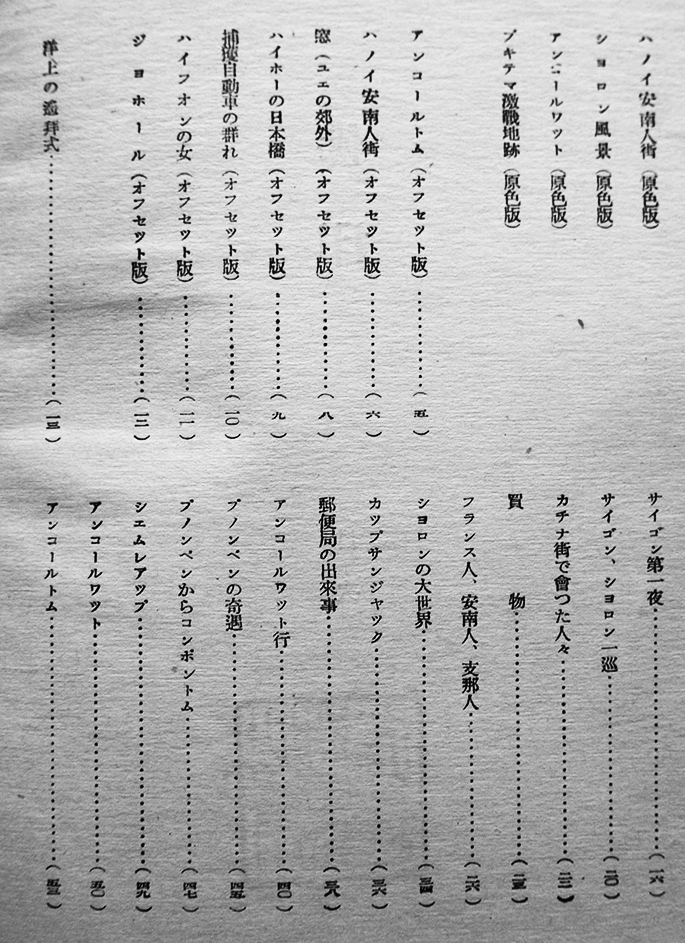 ハノイ安南人街(原色版)
シヨロン風景(原色版)
アンコールワツト(原色版)
ブキテマ激戰地跡(原色版)
アンコールトム(オフセツト版)…………(五)
ハノイ安南人街(オフセツト版)…………(六)
窓(ユエの郊外)(オフセツト版)…………(八)
ハイホーの日本橋(オフセツト版)…………(九)
捕獲自動車の群れ(オフセツト版)…………(一〇)
ハイフオンの女(オフセツト版)…………(一一)
ジヨホール(オフセツト版)…………(一二)
洋上の遙拜式…………(一三)
サイゴン第一夜…………(一六)
サイゴン、シヨロン一巡…………(二〇)
カチナ街で會つた人々…………(二二)
買物…………(二五)
フランス人、安南人、支那人…………(二六)
シヨロンの大世界…………(三四)
カツプサンジヤツク…………(三六)
郵便局の出來事…………(三八)
アンコールワツト行…………(四〇)
プノンペンの奇遇…………(四五)
プノンペンからコンポントム…………(四七)
シエムレアツプ…………(四九)
アンコールワツト…………(五〇)
アンコールトム…………(五三)